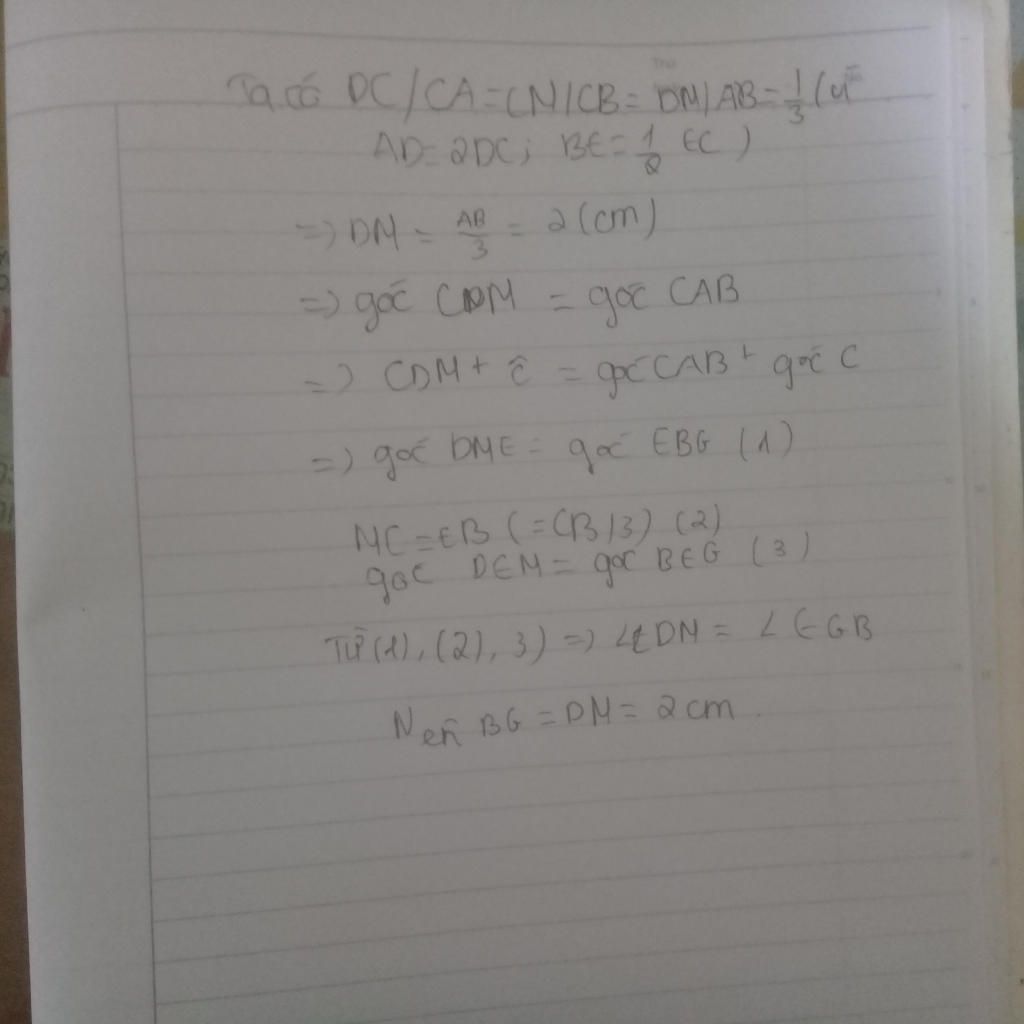 Ta có DC/CA=CM/CB= DM/AB=1/3 (vì
AD=2DC; BE=1/2 EC)
=> DM = AB/3 = 2(cm)
=> góc CDM = góc CAB
=> CDM + ĉ = góc CAB + góc C
=> góc DME = góc EBG (1)
MC=EB (=CB/3) (2)
góc DEM = góc BEG (3)
Từ (1), (2), 3) => ∠EDM = ∠EGB
Nên BG = DM = 2cm.